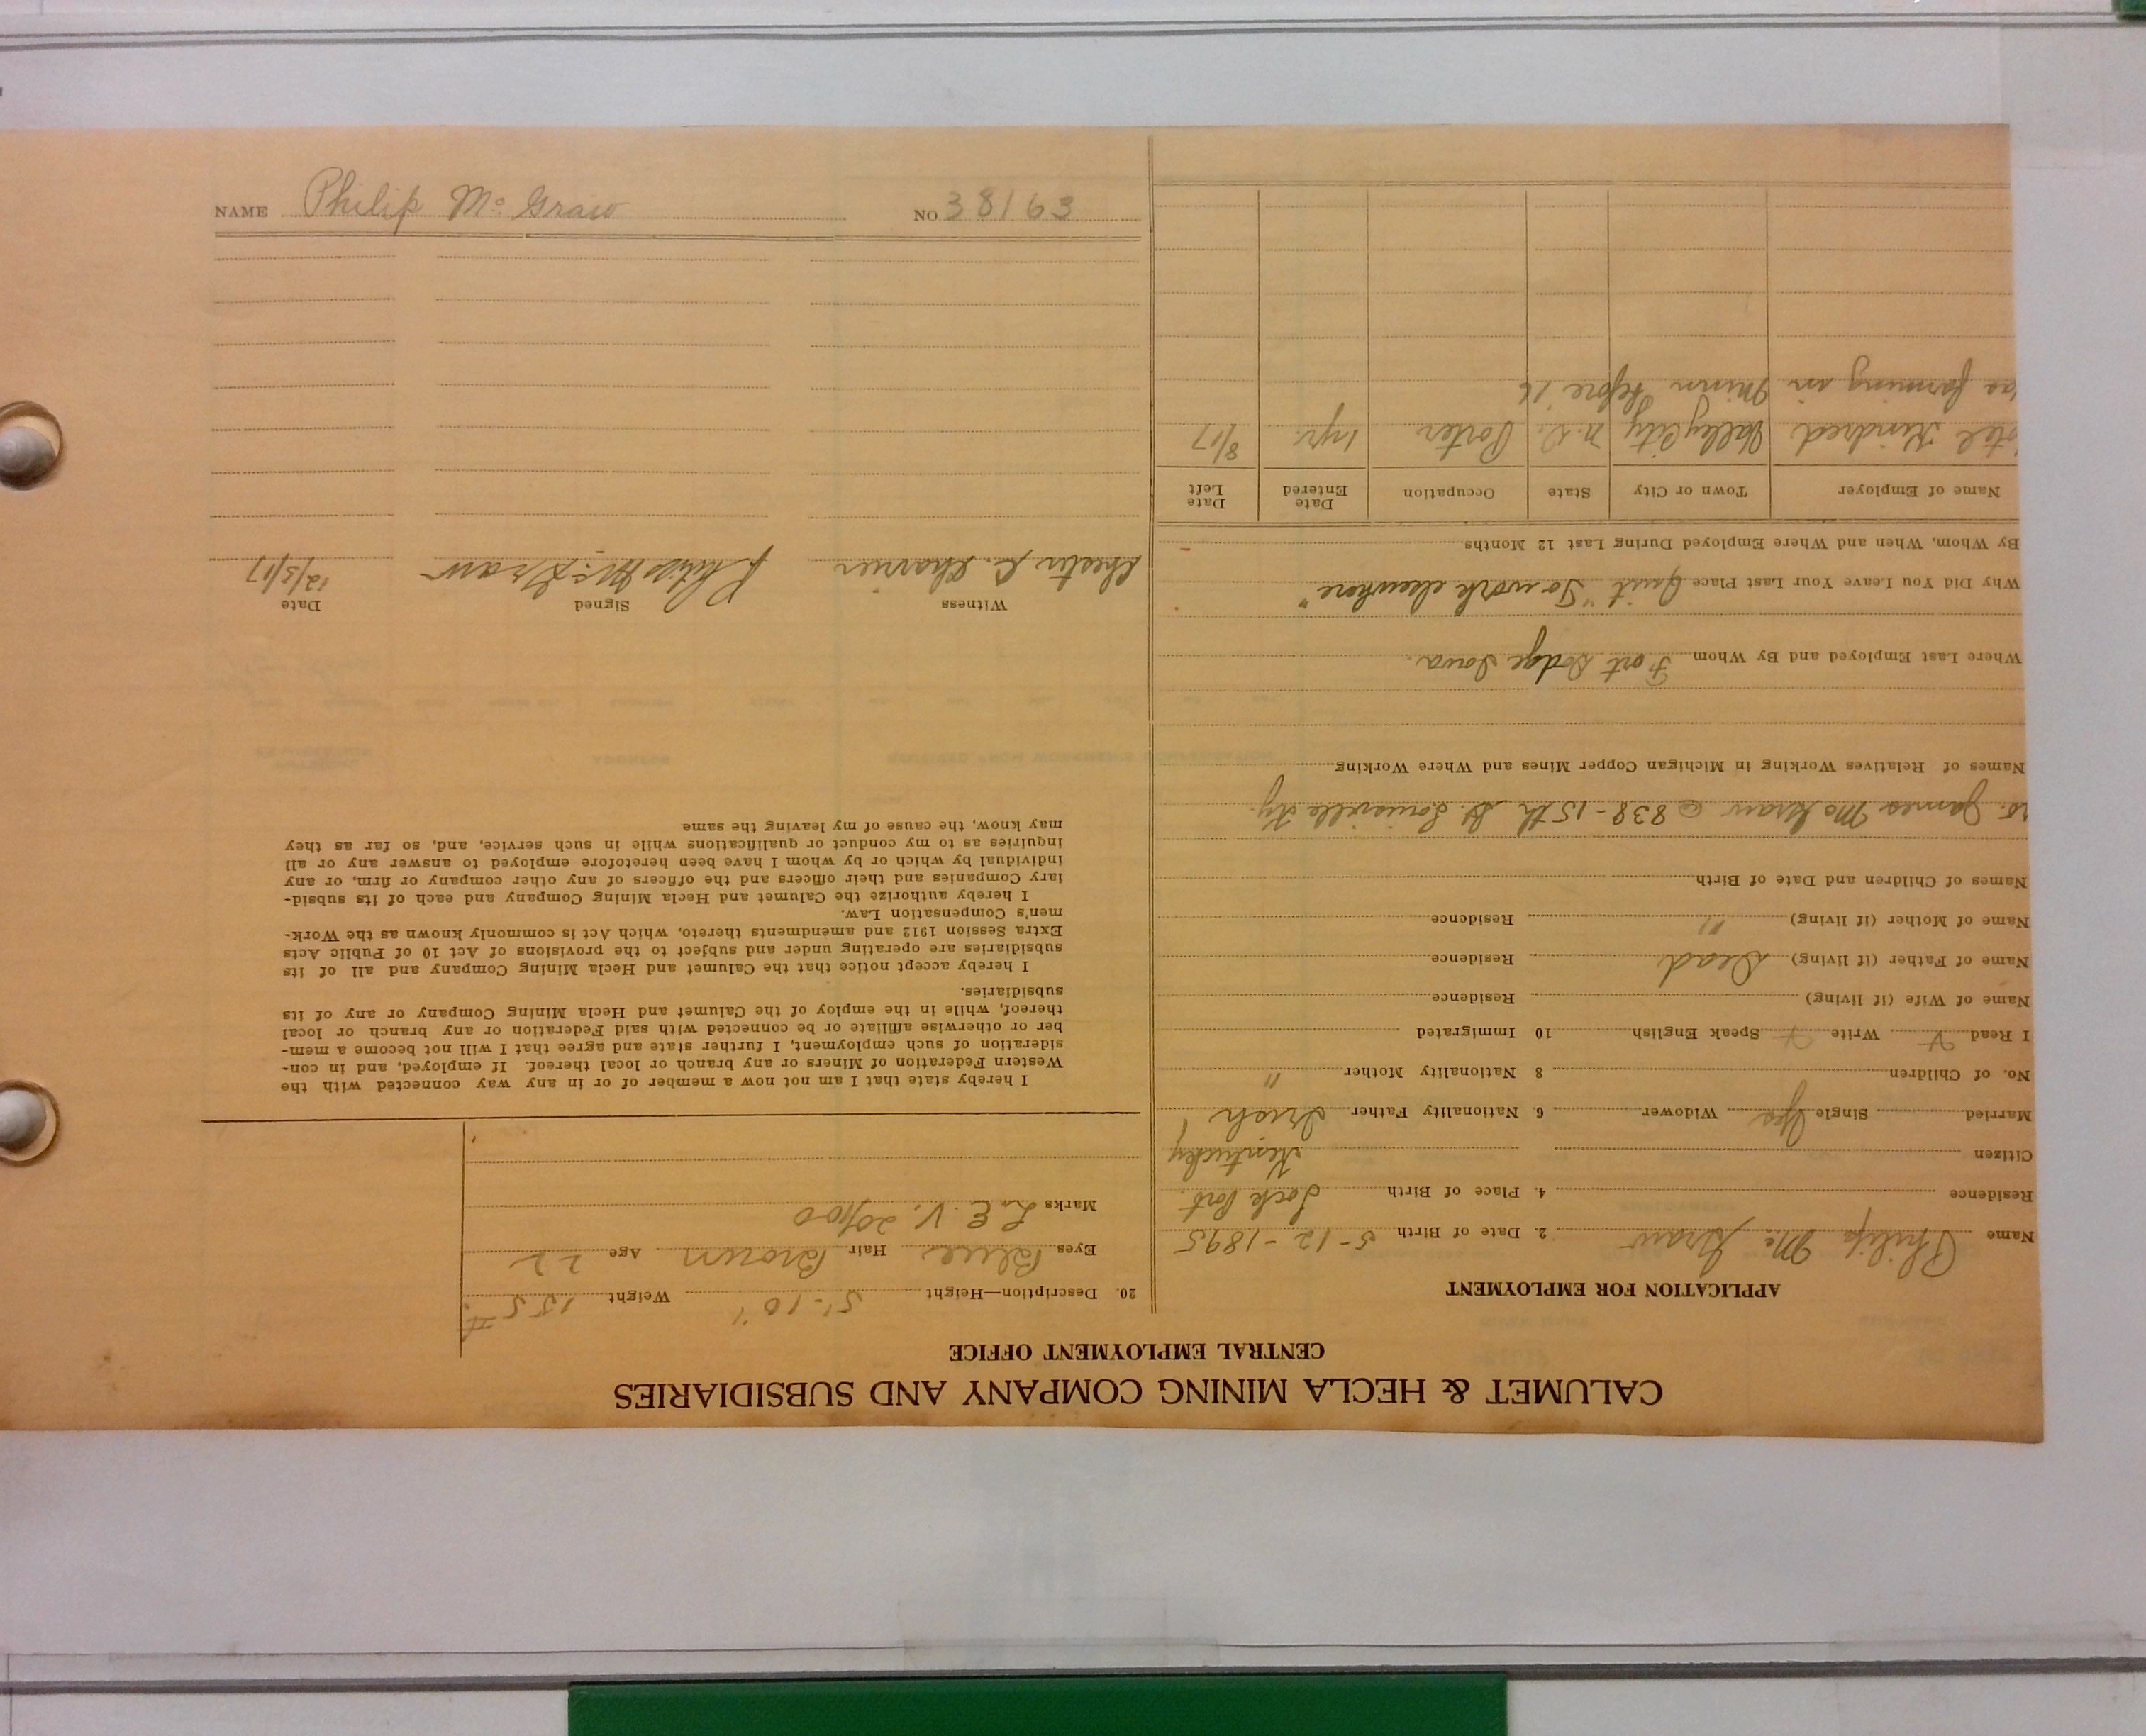 CALUMET & HECLA MINING COMPANY AND SUBSIDIARIES
CENTRAL EMPLOYMENT OFFICE
APPLICATION FOR EMPLOYMENT
Name Philip Mc Graw 2. Date of Birth 5-12-1895
Residence 4. Place of Birth Lock Port.
Citizen Kentucky
Married Single Yes Widower 6. Nationality Father Irish
No. of Children 8 Nationality Mother "
I Read Write Speak English 10 Immigrated
Name of Wife (if living) Residence
Name of Father (if living) Dead Residence
Name of Mother (if living) " Residence
Names of Children and Date of Birth
James McGraw @ 838-15th St. Louisville Ky.
Names of Relatives Working in Michigan Copper Mines and Where Working
Where Last Employed and By Whom Fort Dodge Iowa.
Why Did You Leave Your Last Place Quit "To work elsewhere"
By Whom, When and Where Employed During Last 12 Months
Name of Employer Town or City State Occupation Date Entered Date Left
Kindred Valley City N.D. Porter 1 yr. 8/17
farming in Minn before '16
20. Description—Height 5'-10" Weight 155#
Eyes Blue Hair Brown Age 22
Marks L.E.V. 20/100
I hereby state that I am not now a member of or in any way connected with the
Western Federation of Miners or any branch or local thereof. If employed, and in con-
sideration of such employment, I further state and agree that I will not become a mem-
ber or otherwise affiliate or be connected with said Federation or any branch or local
thereof, while in the employ of the Calumet and Hecla Mining Company or any of its
subsidiaries.
I hereby accept notice that the Calumet and Hecla Mining Company and all of its
subsidiaries are operating under and subject to the provisions of Act 10 of Public Acts
Extra Session 1912 and amendments thereto, which Act is commonly known as the Work-
men's Compensation Law.
I hereby authorize the Calumet and Hecla Mining Company and each of its subsid-
iary Companies and their officers and the officers of any other company or firm, or any
individual by which or by whom I have been heretofore employed to answer any or all
inquiries as to my conduct or qualifications while in such service, and, so far as they
may know, the cause of my leaving the same
Witness Signed Date
Chester C. Philip McGraw 12/5/17
NAME Philip Mc Graw NO. 38163